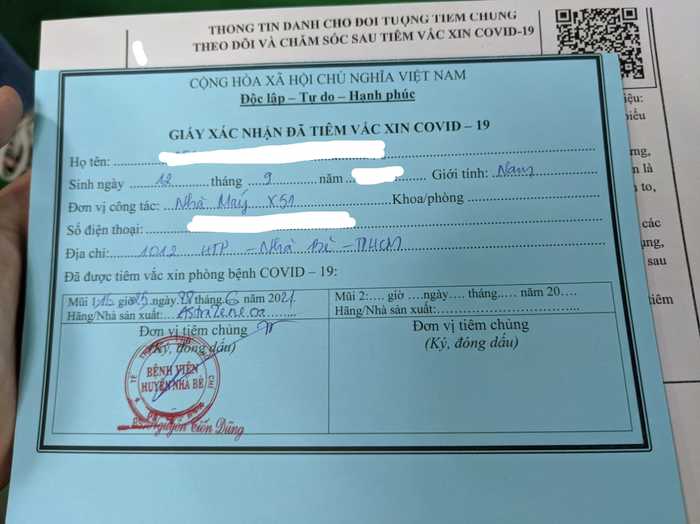 THÔNG TIN DÀNH CHO ĐỐI TƯỢNG TIÊM CHỦNG
THEO DÕI VÀ CHĂM SÓC SAU TIÊM VẮC XIN COVID-19
CỘNG HÒA XÃ HỘI CHỦ NGHĨA VIỆT NAM
Độc lập – Tự do – Hạnh phúc
GIẤY XÁC NHẬN ĐÃ TIÊM VẮC XIN COVID – 19
Họ tên:
Sinh ngày 12 tháng 9 năm Giới tính: Nam
Đơn vị công tác: Nhà Máy X51 Khoa/phòng
Số điện thoại:
Địa chỉ: 1012 HTP - Nhà Bè - TPHCM
Đã được tiêm vắc xin phòng bệnh COVID – 19:
Mũi 1: giờ 25 ngày 28 tháng 6 năm 2021
Hãng/Nhà sản xuất: AstraZeneca
Đơn vị tiêm chủng
(Ký, đóng dấu)
BỆNH VIỆN
HUYỆN NHÀ BÈ
BS. Nguyễn Tiến Dũng
Mũi 2:.... giờ ....ngày..... tháng..... năm 20....
Hãng/Nhà sản xuất:
Đơn vị tiêm chủng
(Ký, đóng dấu)